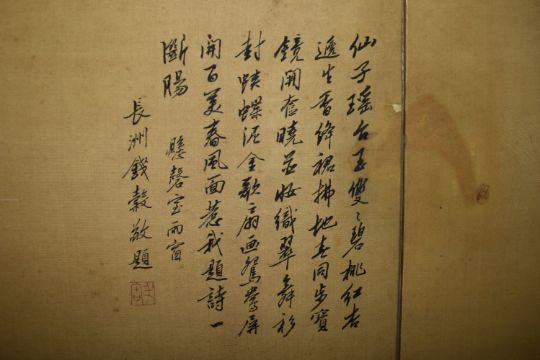 仙子瑶台玉雙〻碧桃红杏
遞生香絳裙拂地同步寶
鏡開奩曉妝織翠舞衫
封蛺蝶泥金歌扇画鴛鴦屏
開百美春風面惹我題詩一
斷腸
懸磬室雨窗
長洲錢穀敬題